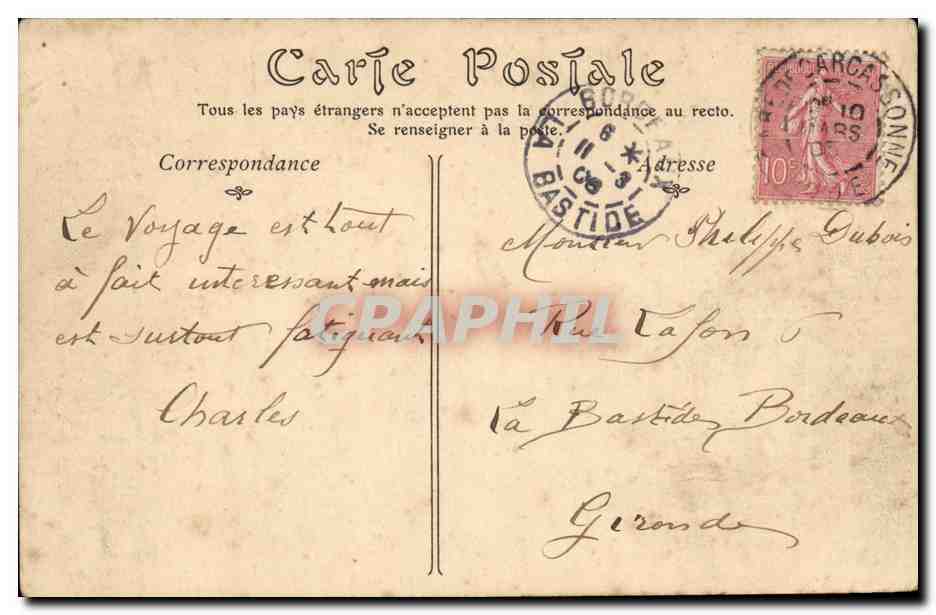 Carte Postale
Tous les pays étrangers n'acceptent pas la correspondance au recto.
Se renseigner à la poste.
Correspondance
Adresse
Le voyage est tout
à fait interessant mais
est surtout fatiguant
Charles
Monsieur Philippe Dubois
Rue Lafon
La Bastide Bordeaux
Gironde
BORDEAUX
LA BASTIDE
CARCASSONNE
MARS
10c
CPAPHIL